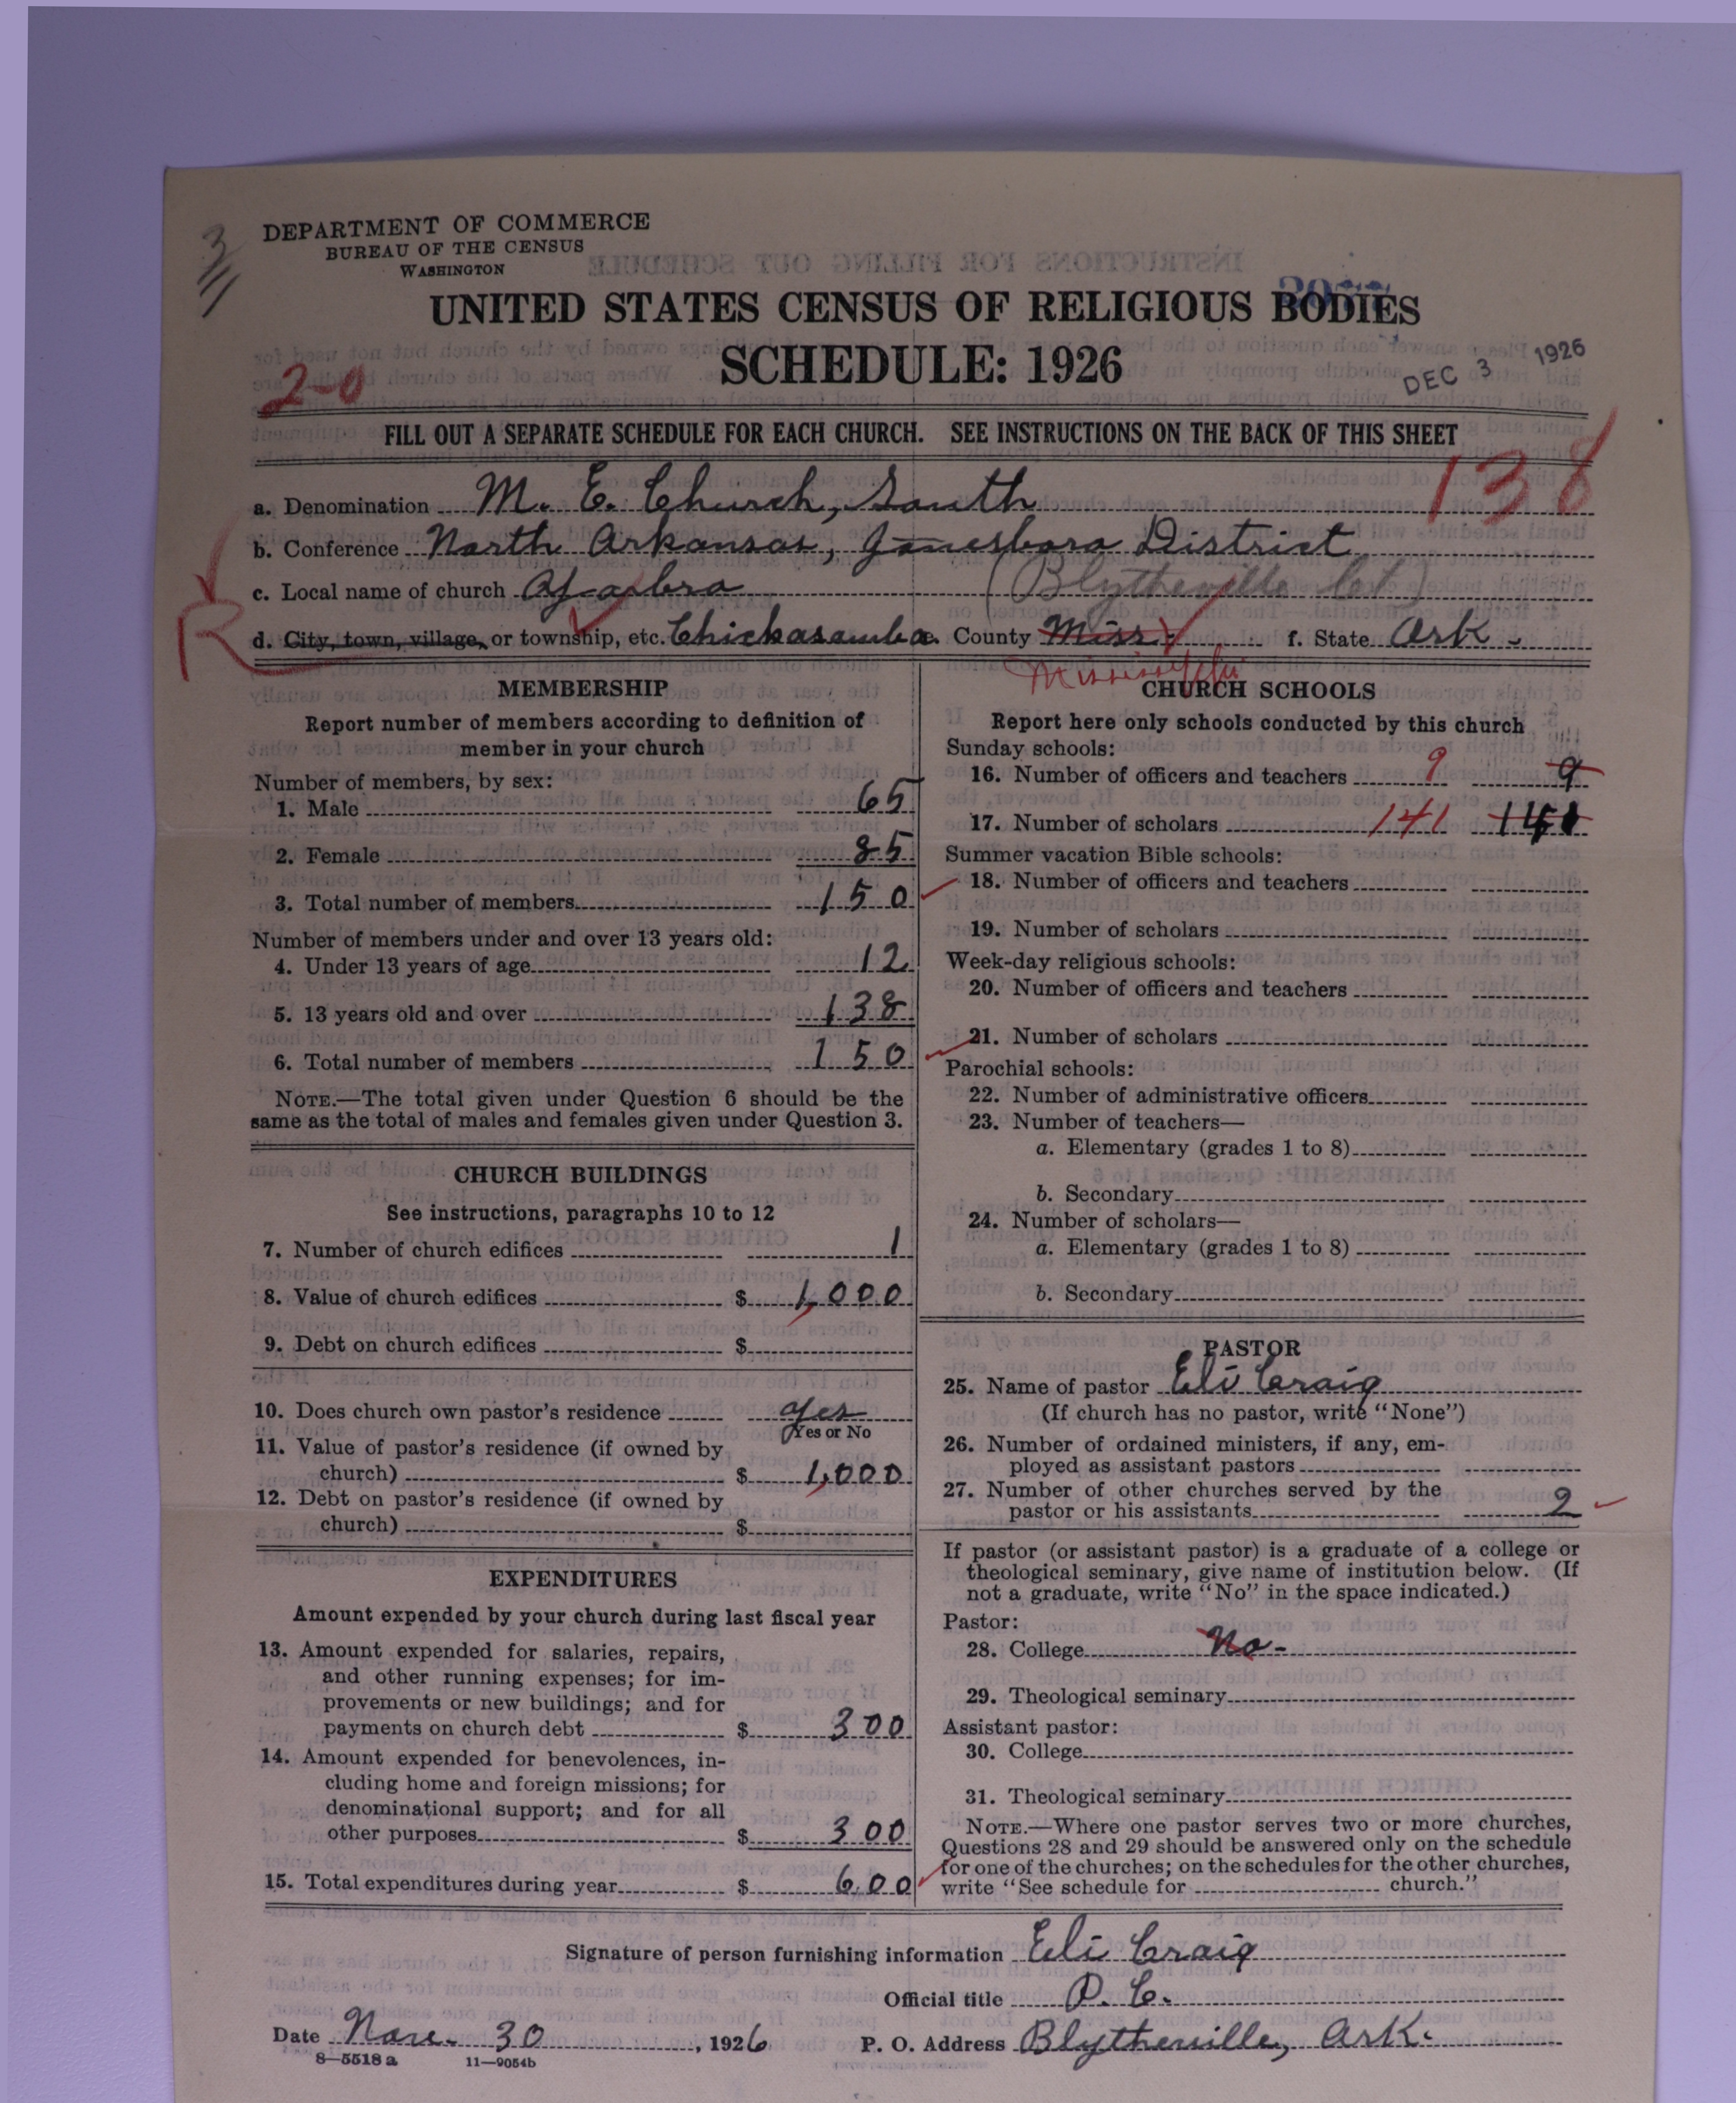 DEPARTMENT OF COMMERCE
BUREAU OF THE CENSUS
WASHINGTON
UNITED STATES CENSUS OF RELIGIOUS BODIES
SCHEDULE: 1926
DEC 3 1926
2-0
FILL OUT A SEPARATE SCHEDULE FOR EACH CHURCH. SEE INSTRUCTIONS ON THE BACK OF THIS SHEET
138
a. Denomination M. E. Church, South
b. Conference North Arkansas, Jonesboro District
c. Local name of church (Blytheville Cct)
R
d. City, town, village, or township, etc. Chickasawba e. County Miss. f. State Ark.
Mississippi
MEMBERSHIP
Report number of members according to definition of
member in your church
Number of members, by sex:
1. Male 65
2. Female 85
3. Total number of members 150
Number of members under and over 13 years old:
4. Under 13 years of age 12
5. 13 years old and over 138
6. Total number of members 150
NOTE.—The total given under Question 6 should be the
same as the total of males and females given under Question 3.
CHURCH BUILDINGS
See instructions, paragraphs 10 to 12
7. Number of church edifices 1
8. Value of church edifices $ 1,000
9. Debt on church edifices $
10. Does church own pastor's residence yes
Yes or No
11. Value of pastor's residence (if owned by
church) $ 1,000
12. Debt on pastor's residence (if owned by
church) $
EXPENDITURES
Amount expended by your church during last fiscal year
13. Amount expended for salaries, repairs,
and other running expenses; for im-
provements or new buildings; and for
payments on church debt $ 300
14. Amount expended for benevolences, in-
cluding home and foreign missions; for
denominational support; and for all
other purposes $ 300
15. Total expenditures during year $ 600
CHURCH SCHOOLS
Report here only schools conducted by this church
Sunday schools:
16. Number of officers and teachers 9 9
17. Number of scholars 141 141
Summer vacation Bible schools:
18. Number of officers and teachers
19. Number of scholars
Week-day religious schools:
20. Number of officers and teachers
21. Number of scholars
Parochial schools:
22. Number of administrative officers
23. Number of teachers—
a. Elementary (grades 1 to 8)
b. Secondary
24. Number of scholars—
a. Elementary (grades 1 to 8)
b. Secondary
PASTOR
25. Name of pastor Eli Craig
(If church has no pastor, write "None")
26. Number of ordained ministers, if any, em-
ployed as assistant pastors
27. Number of other churches served by the
pastor or his assistants 2
If pastor (or assistant pastor) is a graduate of a college or
theological seminary, give name of institution below. (If
not a graduate, write "No" in the space indicated.)
Pastor:
28. College No-
29. Theological seminary
Assistant pastor:
30. College
31. Theological seminary
NOTE.—Where one pastor serves two or more churches,
Questions 28 and 29 should be answered only on the schedule
for one of the churches; on the schedules for the other churches,
write "See schedule for church."
Signature of person furnishing information Eli Craig
Official title P. C.
Date Nov. 30, 1926 P. O. Address Blytheville, Ark.
8—5518 a 11—9054b